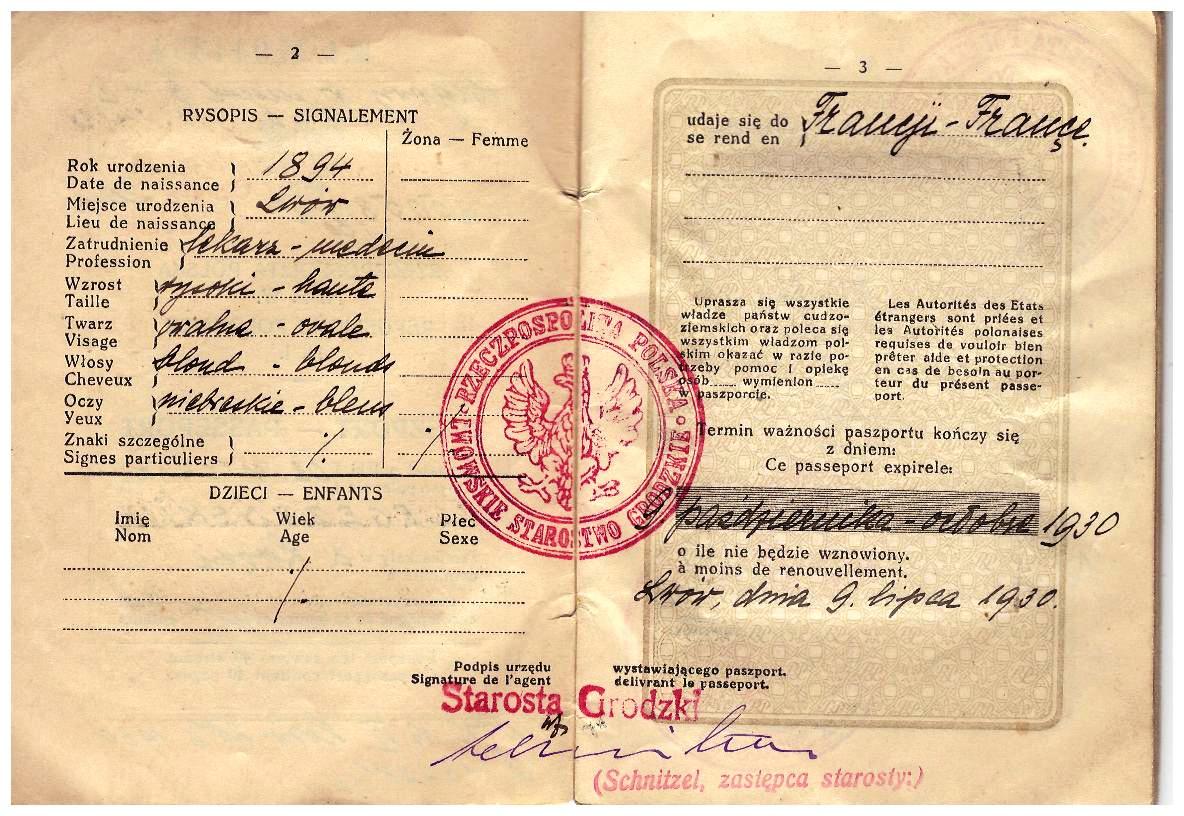 — 2 —
RYSOPIS — SIGNALEMENT
Żona — Femme
Rok urodzenia } 1894
Date de naissance
Miejsce urodzenia } Lwów
Lieu de naissance
Zatrudnienie } lekarz - medecin
Profession
Wzrost } wysoki - haute
Taille
Twarz } owalna - ovale
Visage
Włosy } blond - blonds
Cheveux
Oczy } niebieskie - bleus
Yeux
Znaki szczególne } ./. ./.
Signes particuliers
DZIECI — ENFANTS
Imię Wiek Płeć
Nom Age Sexe
./.
Podpis urzędu
Signature de l'agent
RZECZPOSPOLITA POLSKA
LWOWSKIE STAROSTWO GRODZKIE
— 3 —
udaje się do } Francji - France.
se rend en
Uprasza się wszystkie
władze państw cudzo-
ziemskich oraz poleca się
wszystkim władzom pol-
skim okazać w razie po-
trzeby pomoc i opiekę
osób...... wymienion......
w paszporcie.
Les Autorités des Etats
étrangers sont priées et
les Autorités polonaises
requises de vouloir bien
prêter aide et protection
en cas de besoin au por-
teur du présent passe-
port.
Termin ważności paszportu kończy się
z dniem:
Ce passeport expirele:
października - octobre 1930
o ile nie będzie wznowiony.
à moins de renouvellement.
Lwów, dnia 9. lipca 1930.
wystawiającego paszport.
délivrant le passeport.
Starosta Grodzki
wz.
(Schnitzel, zastępca starosty:)